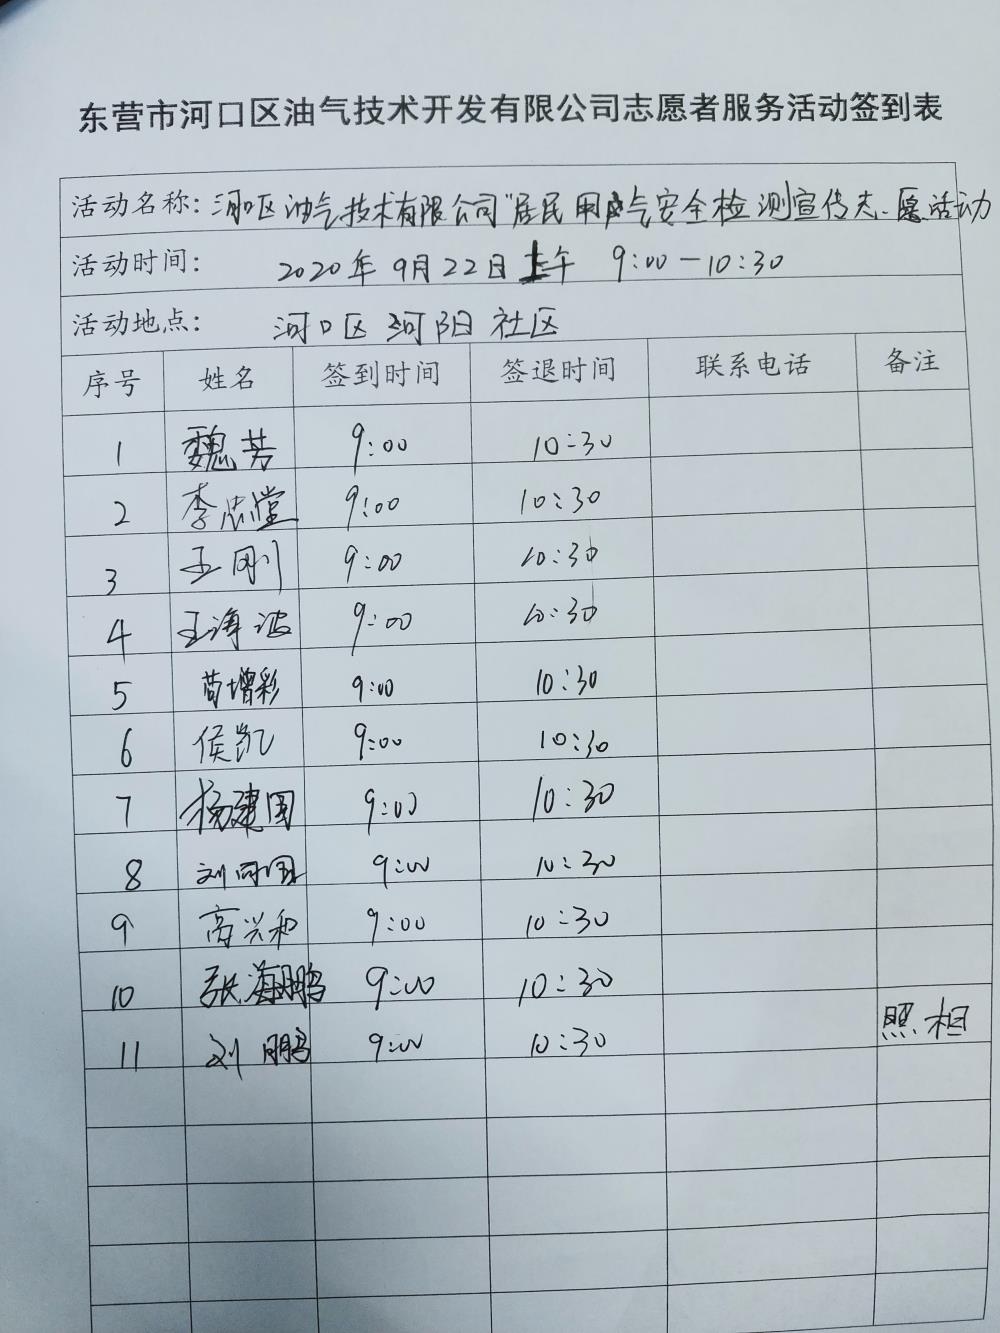 东营市河口区油气技术开发有限公司志愿者服务活动签到表
活动名称：河口区油气技术有限公司"居民用户气安全检测宣传志愿活动
活动时间： 2020年9月22日上午 9:00-10:30
活动地点： 河口区河阳社区
序号 姓名 签到时间 签退时间 联系电话 备注
1 魏芳 9:00 10:30
2 李忠堂 9:00 10:30
3 王刚 9:00 10:30
4 王海波 9:00 10:30
5 苟增彩 9:00 10:30
6 侯凯 9:00 10:30
7 杨建国 9:00 10:30
8 刘同国 9:00 10:30
9 高兴和 9:00 10:30
10 张海鹏 9:00 10:30
11 刘鹏 9:00 10:30 照相